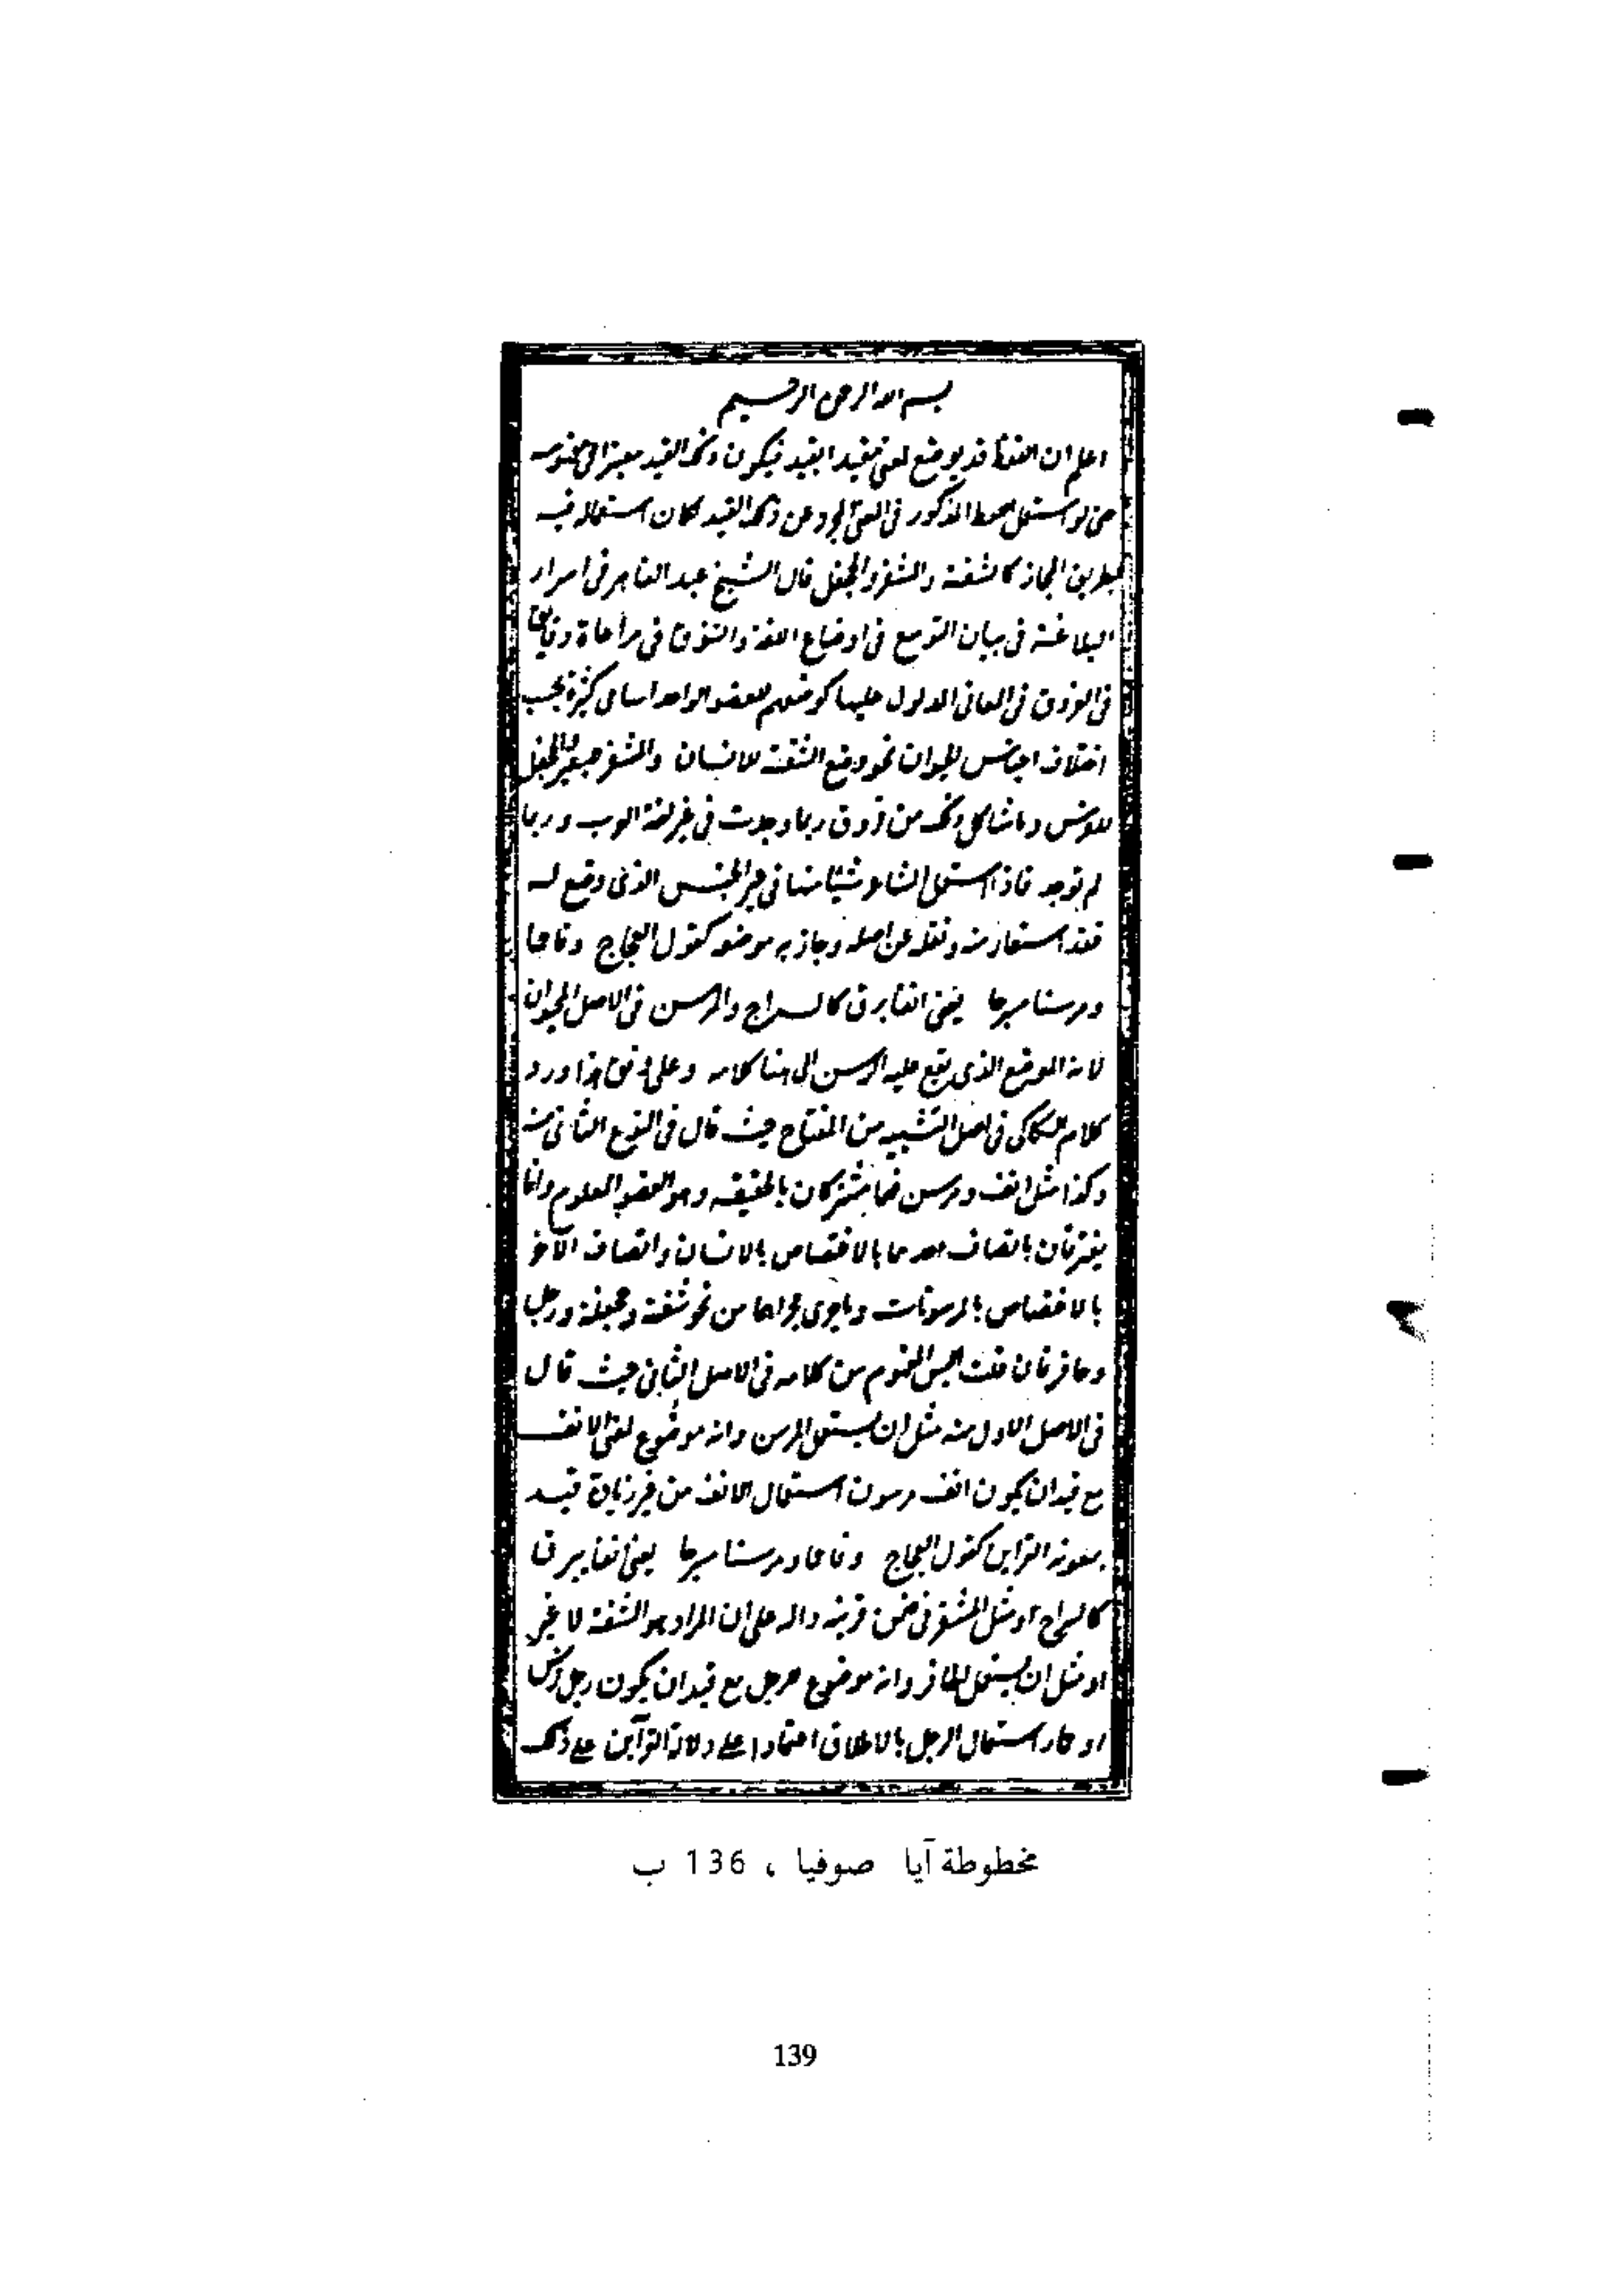 بسم الله الرحمن الرحيم
اعلم ان اللفظ قد يوضع لمعنى مقيد بقيد فيكون ذلك القيد معتبرا فى مفهومه
حتى لو استعمل اللفظ المذكور فى المعنى المجرد عن ذلك القيد لكان استعماله فيه
بطريق المجاز كالشفة والمشفر والجحفل قال الشيخ عبد القاهر فى اسرار
البلاغة فى بيان التوسع فى اوضاع اللغة والتنوق فى مراعاة دقايق
فى الفروق فى المعانى المدلول عليها كوضعهم للعضو الواحد اسامى كثيرة بحسب
اختلاف اجناس الحيوان نحو وضع الشفة للانسان والمشفر للبعير والجحفل
للفرس وما شاكل ذلك من فروق ربما وجدت فى غير لغة العرب وربما
لم توجد فاذا استعمل الشاعر شيئا منها فى غير الجنس الذى وضع له
فقد استعار منه ونقله عن اصله وجاز به موضعه كقول العجاج وفاحما
ومرسنا مسرجا يعنى انفا يبرق كالسراج والمرسن فى الاصل للحيوان
لانه الموضع الذى يقع عليه الرسن الى هنا كلامه وعلى وفق هذا ورد
كلام السكاكى فى اصل التشبيه من المفتاح حيث قال فى النوع الثانى منه
وكذا مثل انف ومرسن فهما مشتركان بالحقيقة وهو العضو المعلوم وانما
يفترقان باتصاف احدهما بالاختصاص بالانسان واتصاف الآخر
بالاختصاص بالمرسونات وما جرى مجراهما من نحو شفة وجحفلة ورجل
وحافر فان قلت اليس المفهوم من كلامه فى الاصل الثانى حيث قال
فى الاصل الاول منه مثل ان يستعمل المرسن وانه موضوع لمعنى الانف
مع قيد ان يكون انف مرسون استعمال الانف من غير زيادة قيد
بمعونة القراين كقول العجاج وفاحما ومرسنا مسرجا يعنى انفا يبرق
كالسراج او مثل المشفر فى ضمن قرينة دالة على ان المراد هو الشفة لا غير
او مثل ان يستعمل الحافر وانه موضوع للرجل مع قيد ان يكون رجل فرس
او حمار استعمال الرجل بالاطلاق اعتمادا على دلالة القرآين على ذلك
مخطوطة آيا صوفيا ، 136 ب
139